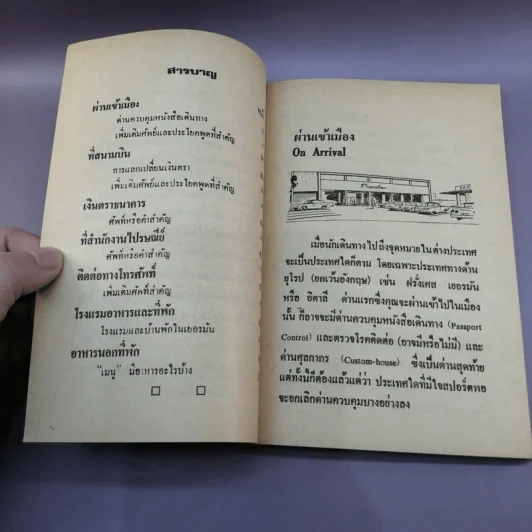 สารบาญ
ผ่านเข้าเมือง
ด่านควบคุมหนังสือเดินทาง
เพิ่มเติมศัพย์และประโยคพูดที่สำคัญ
ที่สนามบิน
การแลกเปลี่ยนเงินตรา
เพิ่มเติมศัพย์และประโยคพูดที่สำคัญ
เงินตราธนาคาร
ศัพท์หรือคำสำคัญ
ที่สำนักงานไปรษณีย์
ศัพท์หรือคำสำคัญ
ติดต่อทางโทรศัพท์
เพิ่มเติมศัพท์ที่สำคัญ
โรงแรมอาหารและที่พัก
โรงแรมและบ้านพักในเยอรมัน
อาหารนอกที่พัก
"เมนู" มีอาหารอะไรบ้าง
ผ่านเข้าเมือง
On Arrival
เมื่อนักเดินทางไปถึงจุดหมายในต่างประเทศ
จะเป็นประเทศใดก็ตาม โดยเฉพาะประเทศทางด้าน
ยุโรป (ยกเว้นอังกฤษ) เช่น ฝรั่งเศส เยอรมัน
หรือ อิตาลี ด่านแรกซึ่งคุณจะผ่านเข้าไปในเมือง
นั้น ก็อาจจะมีด่านควบคุมหนังสือเดินทาง (Passport
Control) และตรวจโรคติดต่อ (อาจมีหรือไม่มี) และ
ด่านศุลกากร (Custom-house) ซึ่งเป็นด่านสุดท้าย
แต่ทั้งนี้ก็ต้องแล้วแต่ว่า ประเทศใดที่มีใจสปอร์ตพอ
จะยกเลิกด่านควบคุมบางอย่างลง